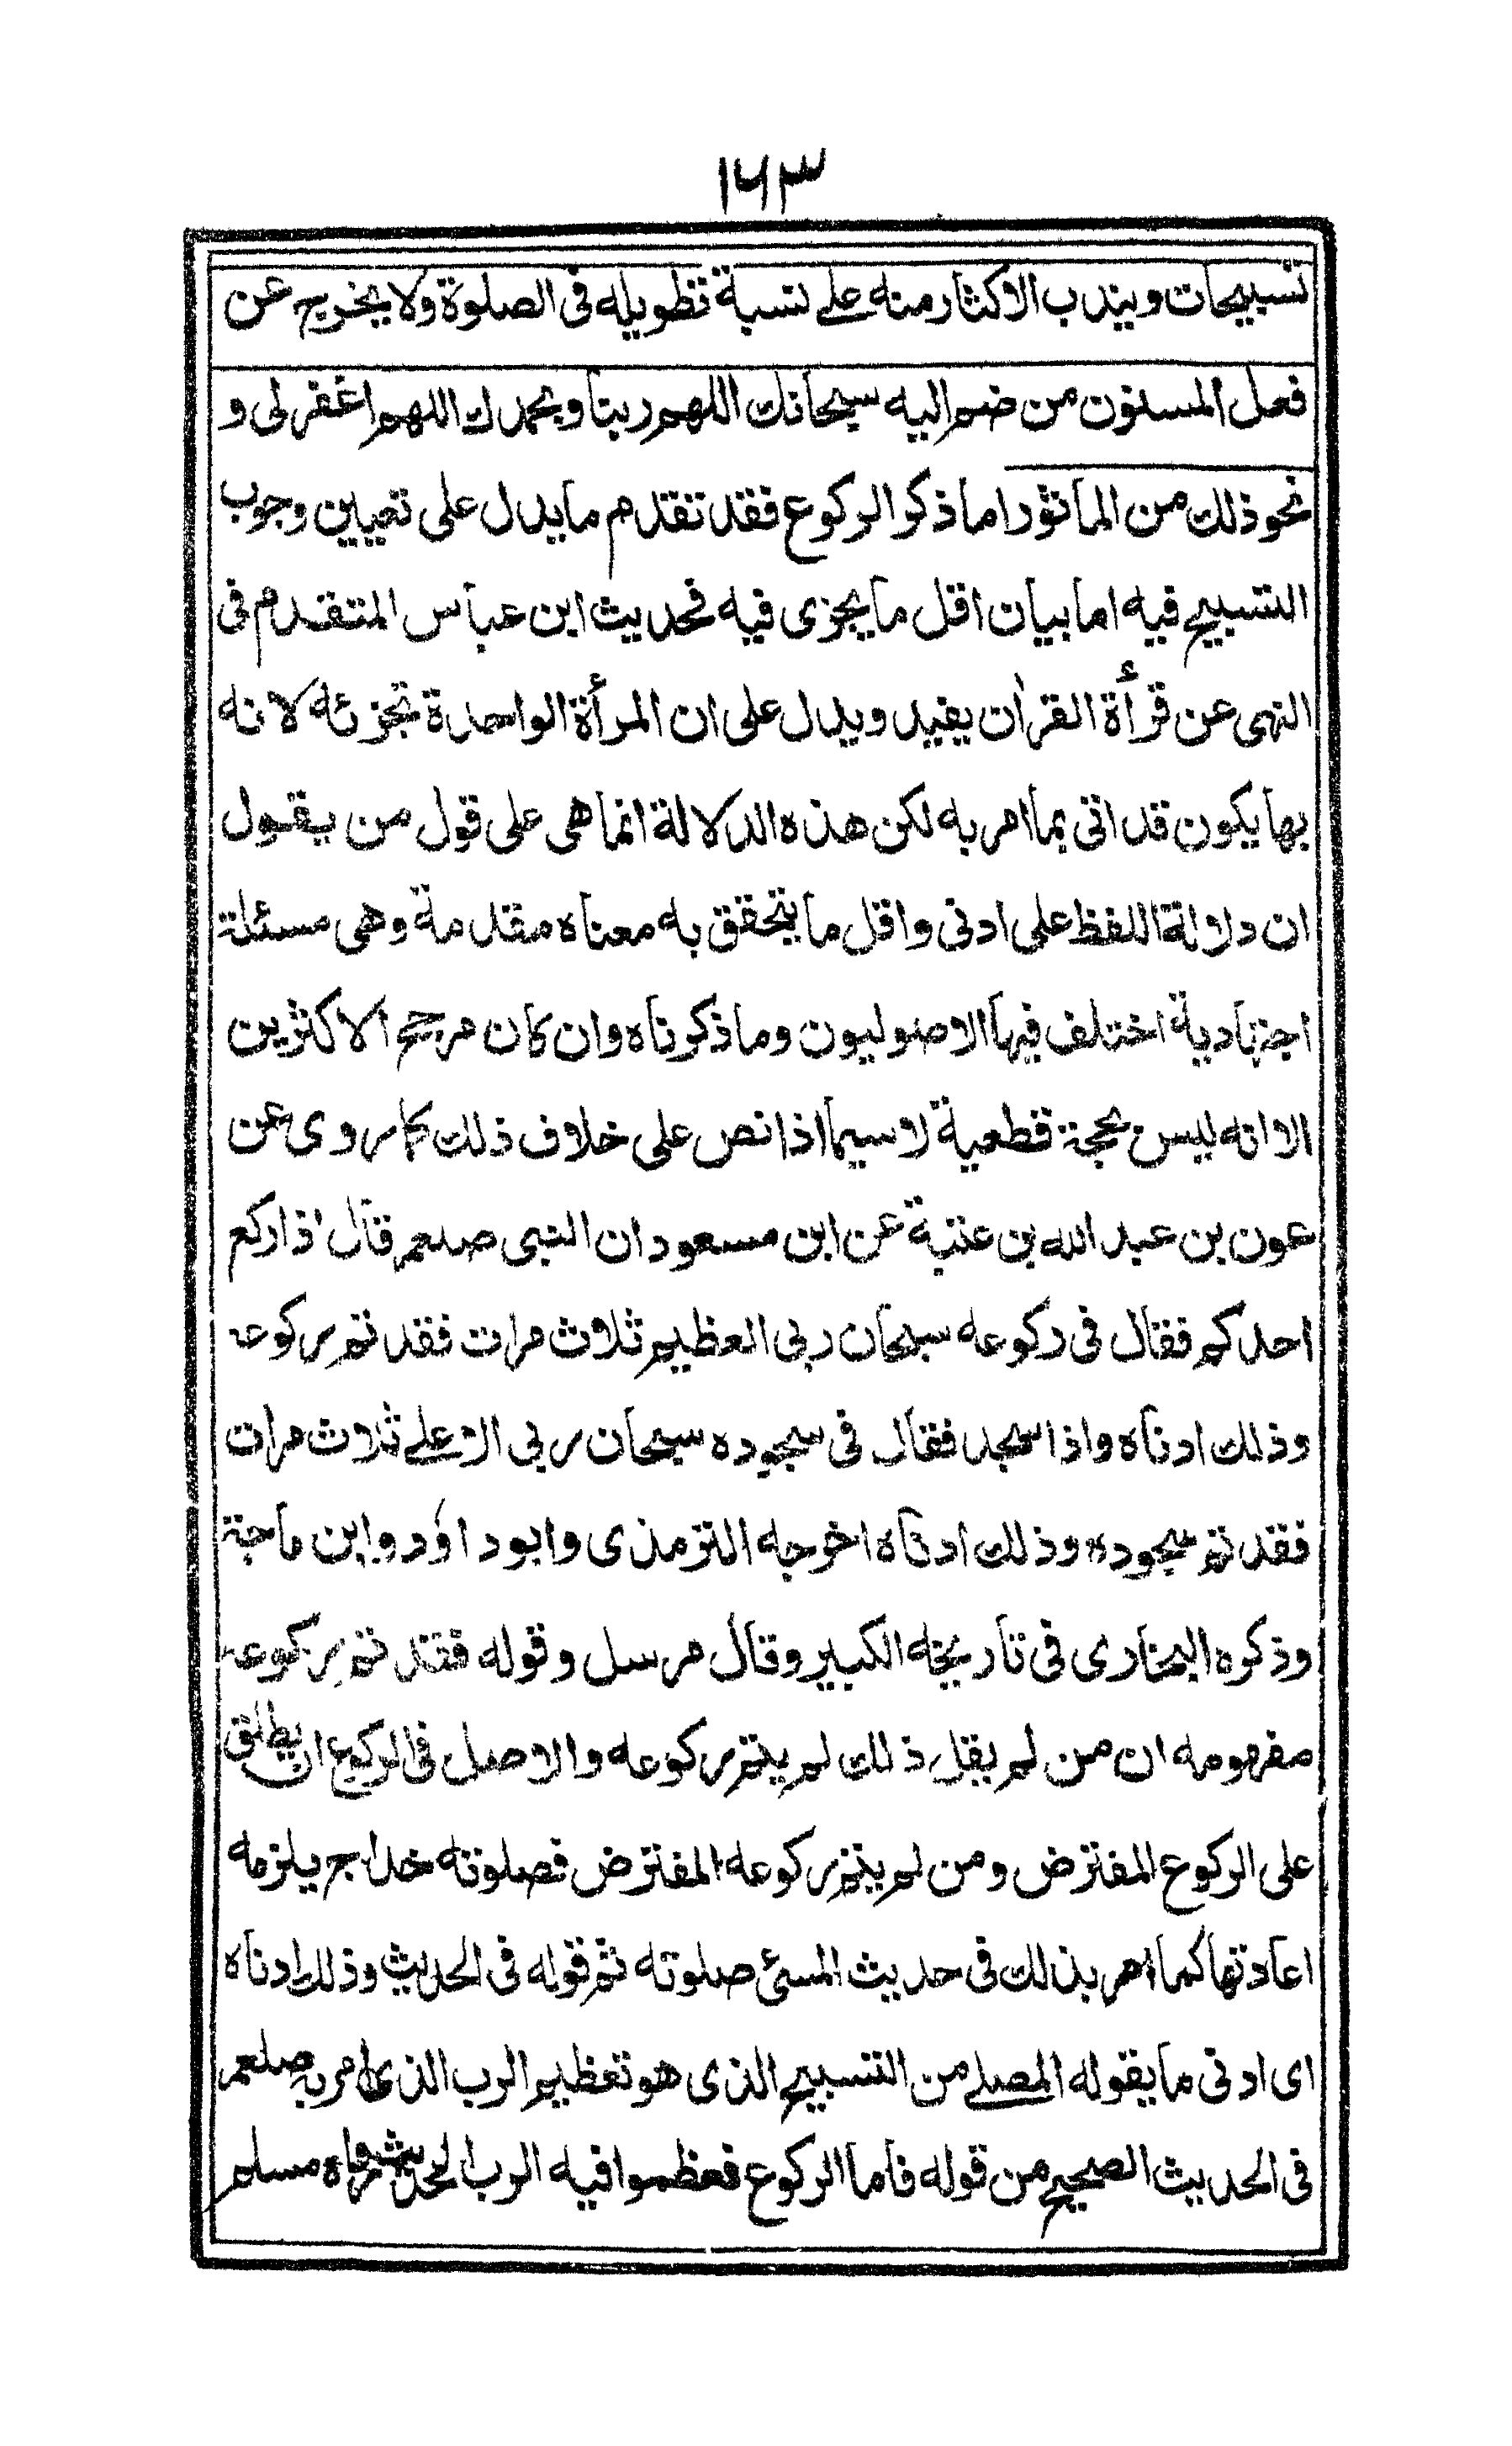 ١٦٣
تسبيحات ويندب الاكثار منه على نسبة تطويله فى الصلوة ولا يخرج عن
فعل المسنون من ضم اليه سبحانك اللهم ربنا وبحمدك اللهم اغفر لى و
نحو ذلك من المأثور اما ذكر الركوع فقد تقدم ما يدل على تعيين وجوب
التسبيح فيه اما بيان اقل ما يجزى فيه فحديث ابن عباس المتقدم فى
النهى عن قرأة القرأن يفيد ويدل على ان المرأة الواحدة تجزئه لانه
بها يكون قد اتى بما امر به لكن هذه الدلالة انما هى على قول من يقول
ان دلالة اللفظ على ادنى واقل ما يتحقق به معناه مقدمة وهى مسئلة
اجتهادية اختلف فيها الاصوليون وما ذكرناه وان كان مرجح الاكثرين
الا انه ليس بحجة قطعية لا سيما اذا نص على خلاف ذلك كما روى عن
عون بن عبد الله بن عتبة عن ابن مسعود ان النبى صلعم قال اذا ركع
احدكم فقال فى ركوعه سبحان ربى العظيم ثلاث مرات فقد تم ركوعه
وذلك ادناه واذا سجد فقال فى سجوده سبحان ربى الاعلے ثلاث مرات
فقد تم سجوده وذلك ادناه اخرجه الترمذى وابو داؤد وابن ماجة
وذكره البخارى فى تاريخه الكبير وقال مرسل وقوله فقد تم ركوعه
مفهومه ان من لم يقل ذلك لم يتم ركوعه والاصل فى الركوع ان يطلق
على الركوع المفترض ومن لم يتم ركوعه المفترض فصلوته خداج يلزمه
اعادتها كما امر بذلك فى حديث المسئ صلوته ثم قوله فى الحديث وذلك ادناه
اى ادنى ما يقوله المصلے من التسبيح الذى هو تعظيم الرب الذى امر به صلعم
فى الحديث الصحيح من قوله فأما الركوع فعظموا فيه الرب الحديث رواه مسلم